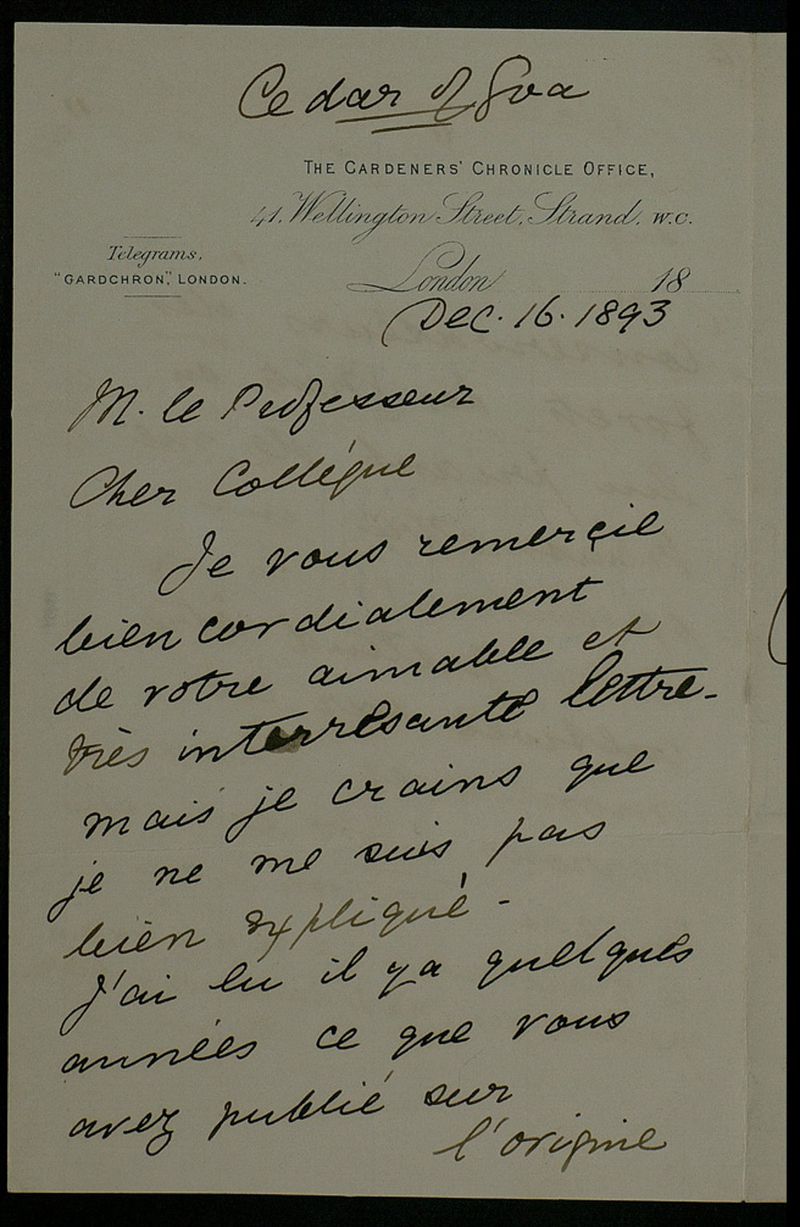 Cedar of Goa
THE GARDENERS' CHRONICLE OFFICE,
41, Wellington Street, Strand, W.C.
Telegrams,
"GARDCHRON", LONDON.
London 18
Dec. 16. 1893
M. le Professeur
Cher Collégue
Je vous remerçie
bien cordialement
de votre aimable et
très interrésante lettre -
mais je crains que
je ne me suis pas
bien expliqué -
J'ai lu il y a quelques
années ce que vous
avez publié sur
l'origine